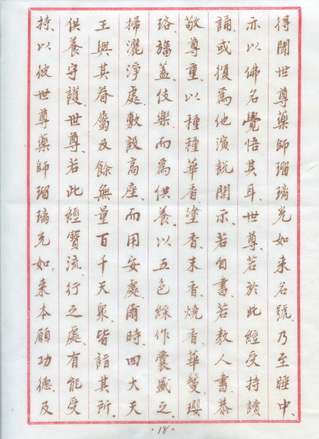 得聞世尊藥師瑠璃光如來名號乃至睡中
亦以佛名覺悟其耳世尊若於此經受持讀
誦或復為他演說開示若自書若教人書恭
敬尊重以種種華香塗香末香燒香華鬘瓔
珞旛蓋伎樂而為供養以五色綵作囊盛之
掃灑淨處敷設高座而用安處爾時四大天
王與其眷屬及餘無量百千天眾皆詣其所
供養守護世尊若此經寶流行之處有能受
持以彼世尊藥師瑠璃光如來本願功德及
·18·